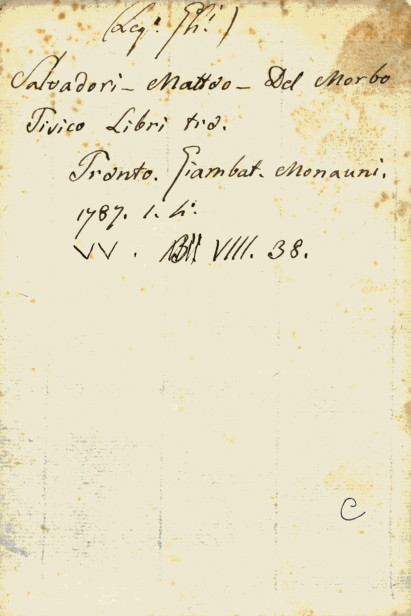 (Leg: Gh:)
Salvadori - Matteo - Del Morbo
Tisico Libri tre.
Trento. Giambat. Monauni.
1787. 1. 4:
VV . VIII. 38.
C